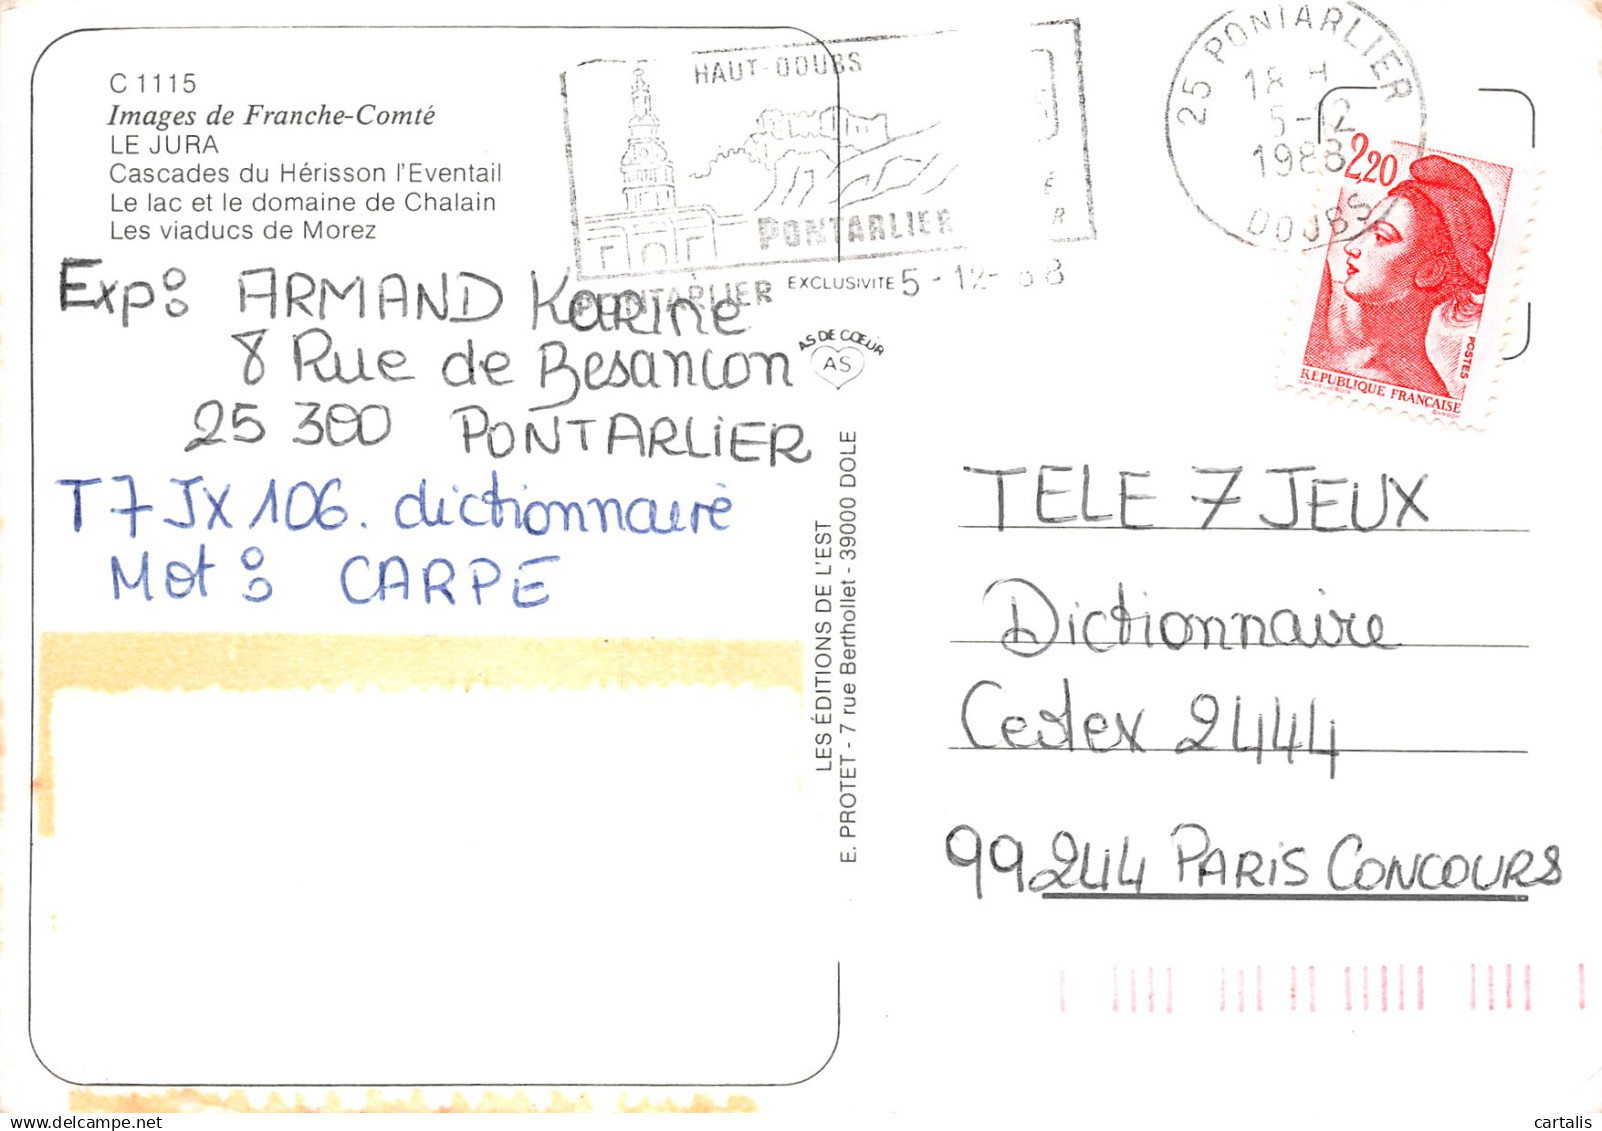 C 1115
Images de Franche-Comté
LE JURA
Cascades du Hérisson l'Eventail
Le lac et le domaine de Chalain
Les viaducs de Morez
HAUT-DOUBS
PONTARLIER
PONTARLIER
5-12-88
25 PONTARLIER
18 H
5-12
1988
DOUBS
2,20
POSTES
REPUBLIQUE FRANÇAISE
Exp: ARMAND Karine
8 Rue de Besancon
25 300 PONTARLIER
T7JX 106. dictionnaire
Mot: CARPE
EXCLUSIVITE
AS DE CŒUR
AS
LES ÉDITIONS DE L'EST
E. PROTET - 7 rue Berthollet - 39000 DOLE
TELE 7 JEUX
Dictionnaire
Cedex 2444
99244 PARIS CONCOURS
cartalis